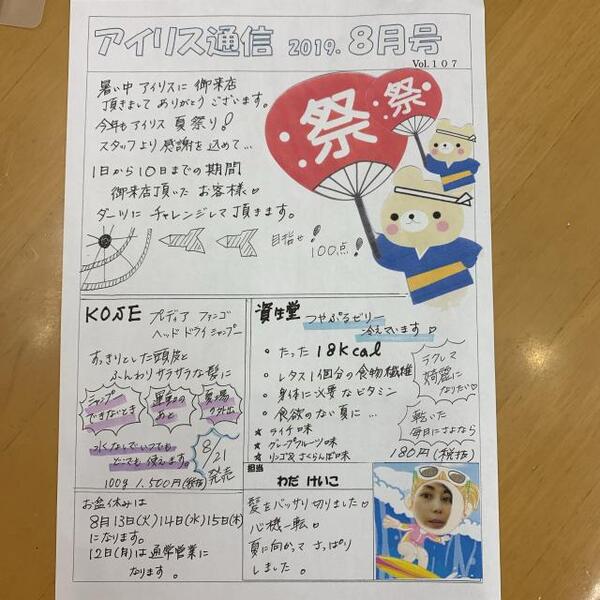 アイリス通信 2019. 8月号
Vol.107
暑い中 アイリスに 御来店
頂きまして ありがとう ございます。
今年も アイリス 夏祭り!
スタッフより 感謝を 込めて…
1日から10日までの期間
御来店頂いた お客様♡
ダーツに チャレンジして頂きます。
目指せ!
100点!
祭
祭
KOSE プレディア ファンゴ
ヘッド ドライ シャンプー
すっきりとした頭皮と
ふんわりサラサラな髪に
シャンプー
できないとき
運動の
あと
夏場
の外出
水なしでいつでも
どこでも 使えます。
8/21
発売
100g 1.500円(税抜)
資生堂 つやぷるゼリー
冷えています♡
・たった 18Kcal
・レタス1個分の食物繊維
・身体に必要なビタミン
・食欲のない夏に…
★ライチ味
★グレープフルーツ味
★リンゴ&さくらんぼ味
ラクして
綺麗に
なりたい♡
乾いた
毎日にさよなら
180円(税抜)
お盆休みは
8月13日(火)14日(水)15日(木)
になります。
12日(月)は通常営業に
なります。
担当
わだ けいこ
髪をバッサリ切りました♡
心機一転♡
夏に向かって さっぱり
しました。